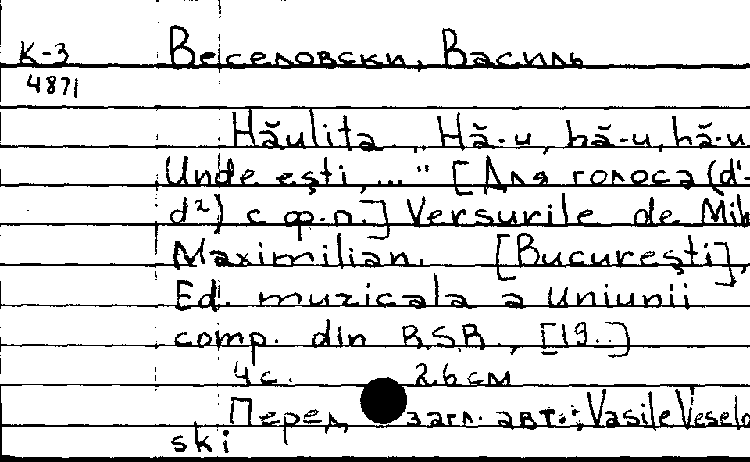 К-3 Веселовски, Василь
4871
Hăulita „Hă-u, hă-u, hă-u
Unde eşti, ..." [Для голоса (d¹-
d²) с ф.п.] Versurile de Mih
Maximilian. [Bucureşti],
Ed. muzicala a Uniunii
comp. din R.S.R., [19..]
4 с. 26 см
Перед загл. авт.: Vasile Veselo
ski